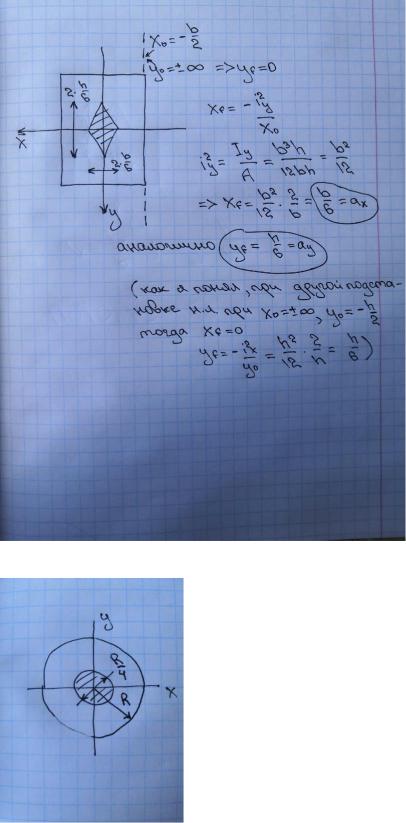 x₀ = -b/2
y₀ = ±∞ => y_F = 0
2·h/6
x_F = - i_y²/x₀
x
2·b/6
i_y² = I_y/A = b³h/12bh = b²/12
=> x_F = b²/12 · 2/b = b/6 = a_x
y
аналогично y_F = h/6 = a_y
(как я понял, при другой подста-
новке н.л. при x₀ = ±∞, y₀ = -h/2
тогда x_F = 0
y_F = - i_x²/y₀ = h²/12 · 2/h = h/6)
y
R/4
R
x